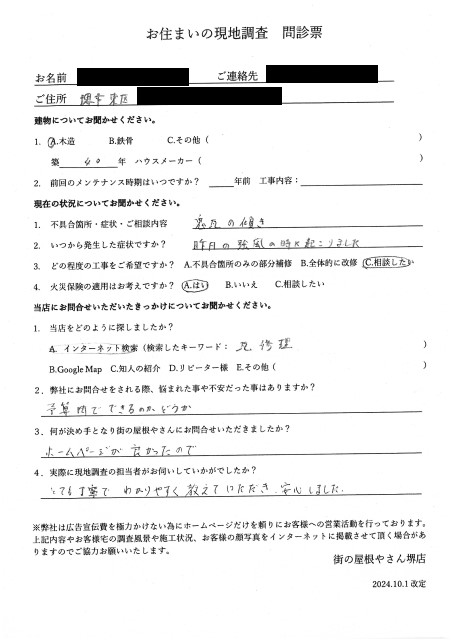 お住まいの現地調査 問診票
お名前 ご連絡先
ご住所 堺市東区
建物についてお聞かせください。
1. A.木造 B.鉄骨 C.その他（ ）
築 40 年 ハウスメーカー（ ）
2. 前回のメンテナンス時期はいつですか？ 年前 工事内容：
現在の状況についてお聞かせください。
1. 不具合箇所・症状・ご相談内容 の傾き
2. いつから発生した症状ですか？ 昨日の強風の時に起こりました
3. どの程度の工事をご希望ですか？ A.不具合箇所のみの部分補修 B.全体的に改修 C.相談したい
4. 火災保険の適用はお考えですか？ A.はい B.いいえ C.相談したい
当店にお問合せいただいたきっかけについてお聞かせください。
1. 当店をどのように探しましたか？
A. インターネット検索（検索したキーワード： 瓦 修理 ）
B.Google Map C.知人の紹介 D.リピーター様 E.その他（ ）
２．弊社にお問合せをされる際、悩まれた事や不安だった事はありますか？
予算内でできるのかどうか
３．何が決め手となり街の屋根やさんにお問合せいただきましたか？
ホームページが良かったので
４．実際に現地調査の担当者がお伺いしていかがでしたか？
とても丁寧で わかりやすく教えていただき、安心しました。
※弊社は広告宣伝費を極力かけない為にホームページだけを頼りにお客様への営業活動を行っております。
上記内容やお客様宅の調査風景や施工状況、お客様の顔写真をインターネットに掲載させて頂く場合があ
りますのでご協力お願いいたします。
街の屋根やさん堺店
2024.10.1 改定